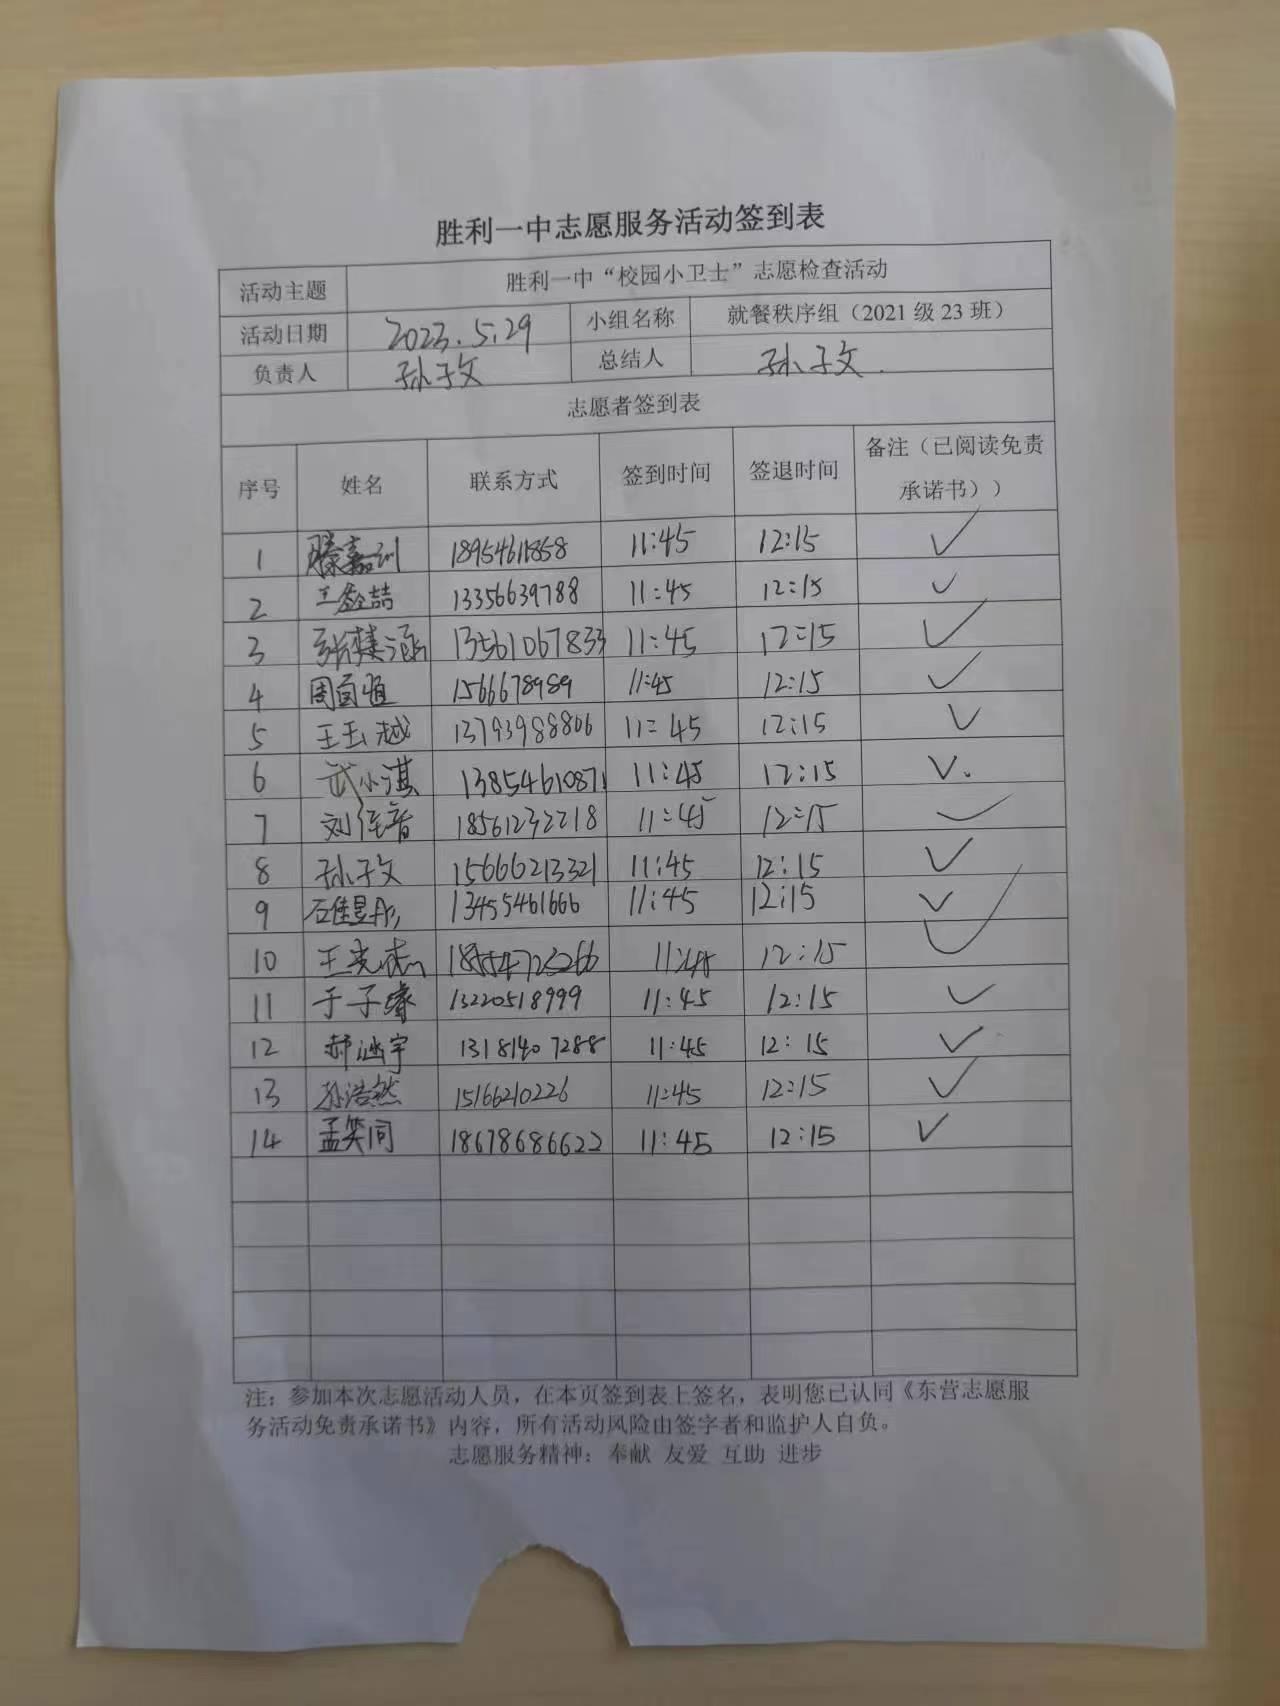 胜利一中志愿服务活动签到表
活动主题 胜利一中“校园小卫士”志愿检查活动
活动日期 2023.5.29 小组名称 就餐秩序组（2021 级 23 班）
负责人 孙子文 总结人 孙子文
志愿者签到表
序号 姓名 联系方式 签到时间 签退时间 备注（已阅读免责承诺书））
1 滕嘉训 18954611858 11:45 12:15 ✓
2 王鑫喆 13356639788 11:45 12:15 ✓
3 13561067833 11:45 12:15 ✓
4 1566678989 11:45 12:15 ✓
5 王玉越 13793988806 11:45 12:15 ✓
6 武小淇 13854610871 11:45 12:15 ✓
7 刘佳音 18561232218 11:45 12:15 ✓
8 孙子文 15666213321 11:45 12:15 ✓
9 13455461666 11:45 12:15 ✓
10 11:45 12:15 ✓
11 于子睿 13220518999 11:45 12:15 ✓
12 郝涵宇 13181407288 11:45 12:15 ✓
13 孙浩然 15166210226 11:45 12:15 ✓
14 孟笑同 18678686622 11:45 12:15 ✓
注：参加本次志愿活动人员，在本页签到表上签名，表明您已认同《东营志愿服
务活动免责承诺书》内容，所有活动风险由签字者和监护人自负。
志愿服务精神：奉献 友爱 互助 进步